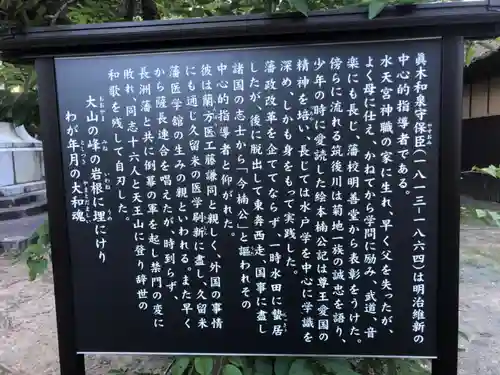 眞木和泉守保臣(一八一三ー一八六四)は明治維新の
やすおみ
中心的指導者である。
水天宮神職の家に生れ、早く父を失ったが、
よく母に仕え、かねてから学問に励み、武道、音
楽にも長じ、藩校明善堂から表彰をうけた。
傍らに流れる筑後川は菊地一族の誠忠を語り、
少年の時に愛読した絵本楠公記は尊王愛国の
精神を培い、長じては水戸学を中心に学識を
深め、しかも身をもって実践した。
藩政改革を企ててならず、一時水田に蟄居
したが、後に脱出して東奔西走、国事に盡し
諸国の志士から「今楠公」と謳われその
中心的指導者と仰がれた。
彼は蘭方医工藤謙同とも親しく、外国の事情
にも通じ久留米の医学刷新に盡し、久留米
藩医学館の生みの親といわれる。また早く
から薩長連合を唱えたが、時到らず、
長洲藩と共に倒幕の軍を起し禁門の変に
敗れ、同志十六人と天王山に登り辞世の
和歌を残して自刃した。
大山の峰の岩根に埋にけり
わが年月の大和魂